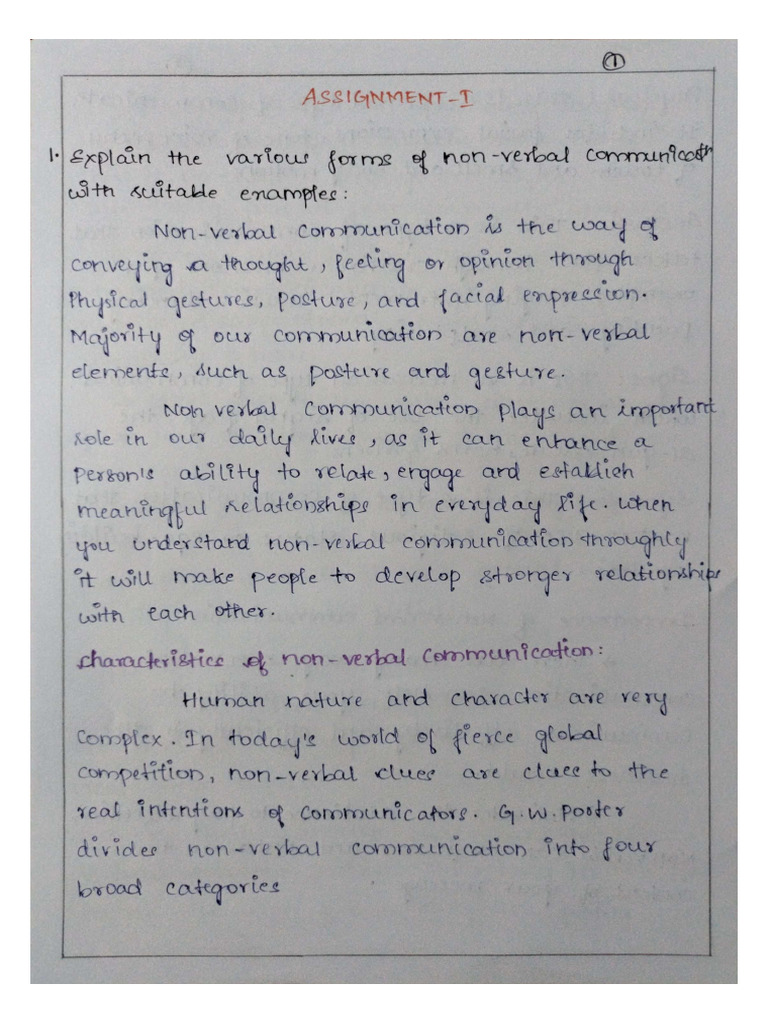 1
ASSIGNMENT-I
1. Explain the various forms of non-verbal communicatn
with suitable enamples:
Non-verbal communication is the way of
conveying a thought, feeling or opinion through
Physical gestures, posture, and facial enpression.
Majority of our communication are non-verbal
elements, such as posture and gesture.
Non verbal communication plays an important
role in our daily lives, as it can enhance a
person's ability to relate, engage and establish
meaningful relationships in everyday life. when
you understand non-verbal communication throughly
it will make people to develop stronger relationships
with each other.
characteristics of non-verbal communication:
Human nature and character are very
complex. In today's world of fierce global
competition, non-verbal clues are clues to the
real intentions of communicators. G.W. Porter
divides non-verbal communication into four
broad categories